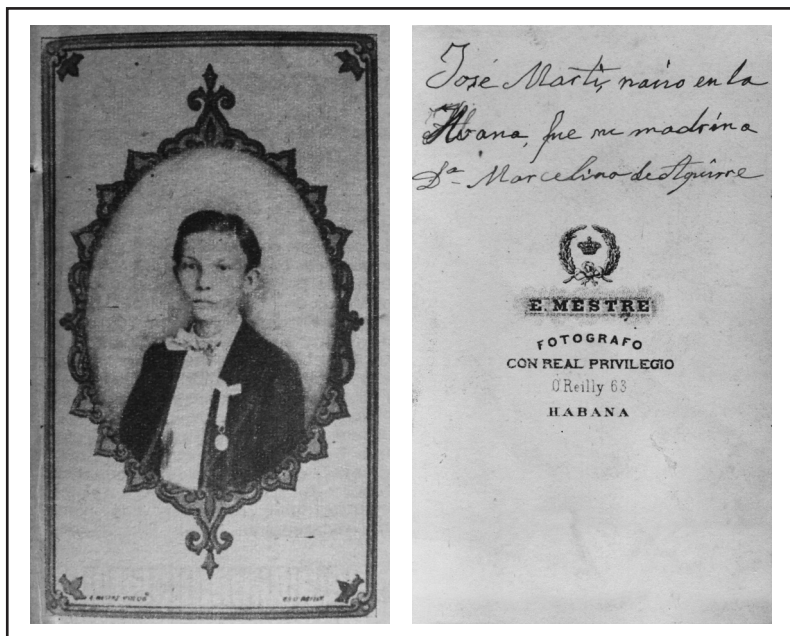 José Martí, nacio en la
Habana, fue su madrina
Dª Marcelina de Aguirre
E. MESTRE
FOTOGRAFO
CON REAL PRIVILEGIO
O'Reilly 63
HABANA